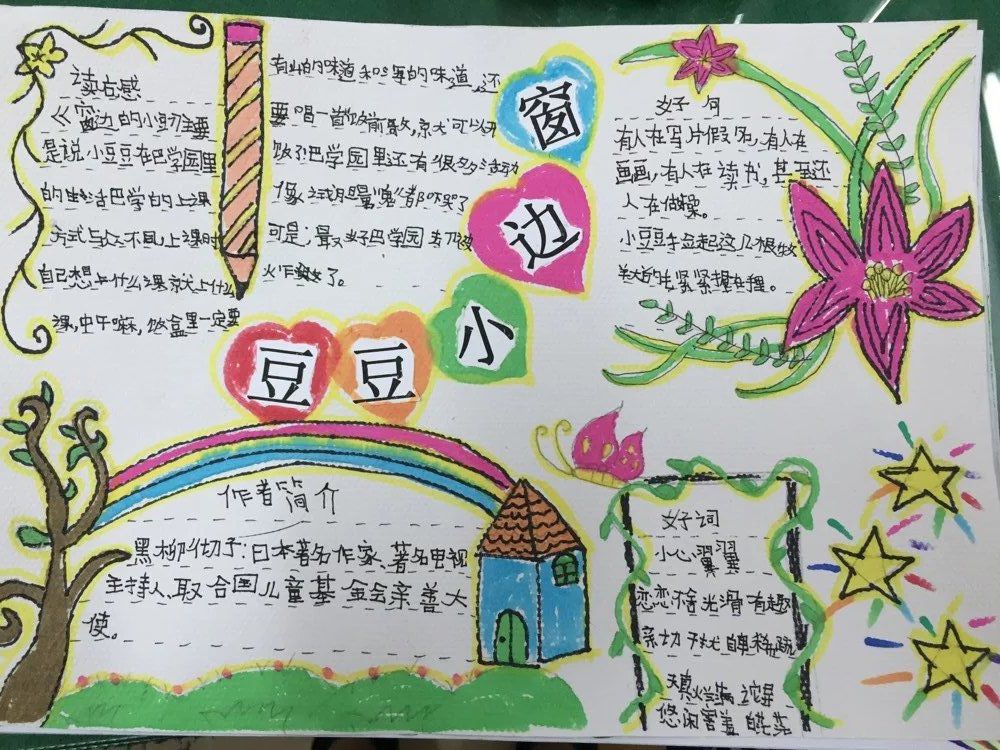 窗
边
小
豆
豆
读后感
《窗边的小豆豆》主要
是说小豆豆在巴学园里
的生活巴学的上课
方式与众不同,上课时
自己想上什么课就上什么
课,中午嘛,饭盒里一定要
有山的味道和海的味道,还
要唱一首饭前歌,京尤可以开
饭了!巴学园里还有很多活动
像试胆量"鬼"者吓哭了
可是,最
好巴学园
火炸
了。
好句
有人在写片假名,有人在
画画,有人在读书,甚至还
人在做操。
小豆豆
起这几根
紧紧握在
里。
作者简介
黑柳彻子:日本著名作家、著名电视
主持人、联合国儿童基金会亲善大
使。
好词
小心翼翼
恋恋不舍 光滑 有趣
亲切
稀疏
悠闲